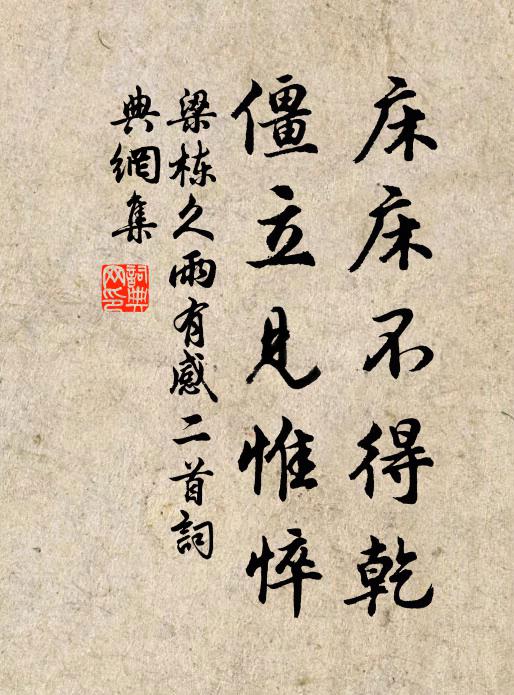 床床不得乾
僵立見惟悴
梁栋久雨有感二首詞
典網集
詞典
网印